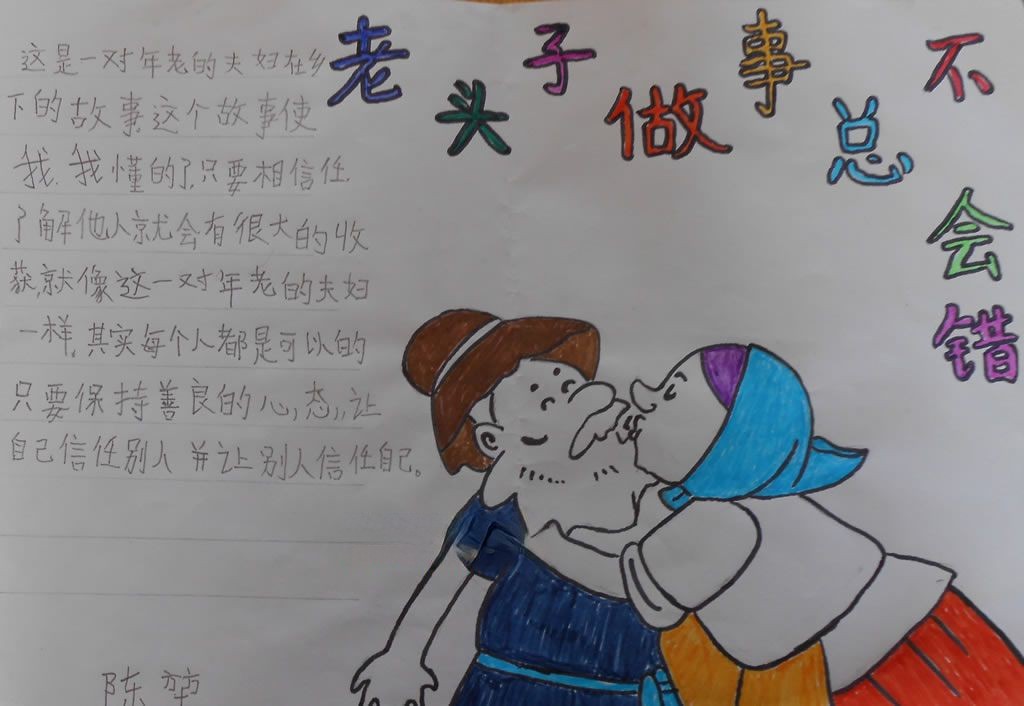 老头子做事总不会错
这是一对年老的夫妇在乡
下的故事,这个故事使
我.我懂的了,只要相信任.
了解他人就会有很大的收
获,就像这一对年老的夫妇
一样,其实每个人都是可以的
只要保持善良的心,态,,让
自己信任别人并让别人信任自己。
陈